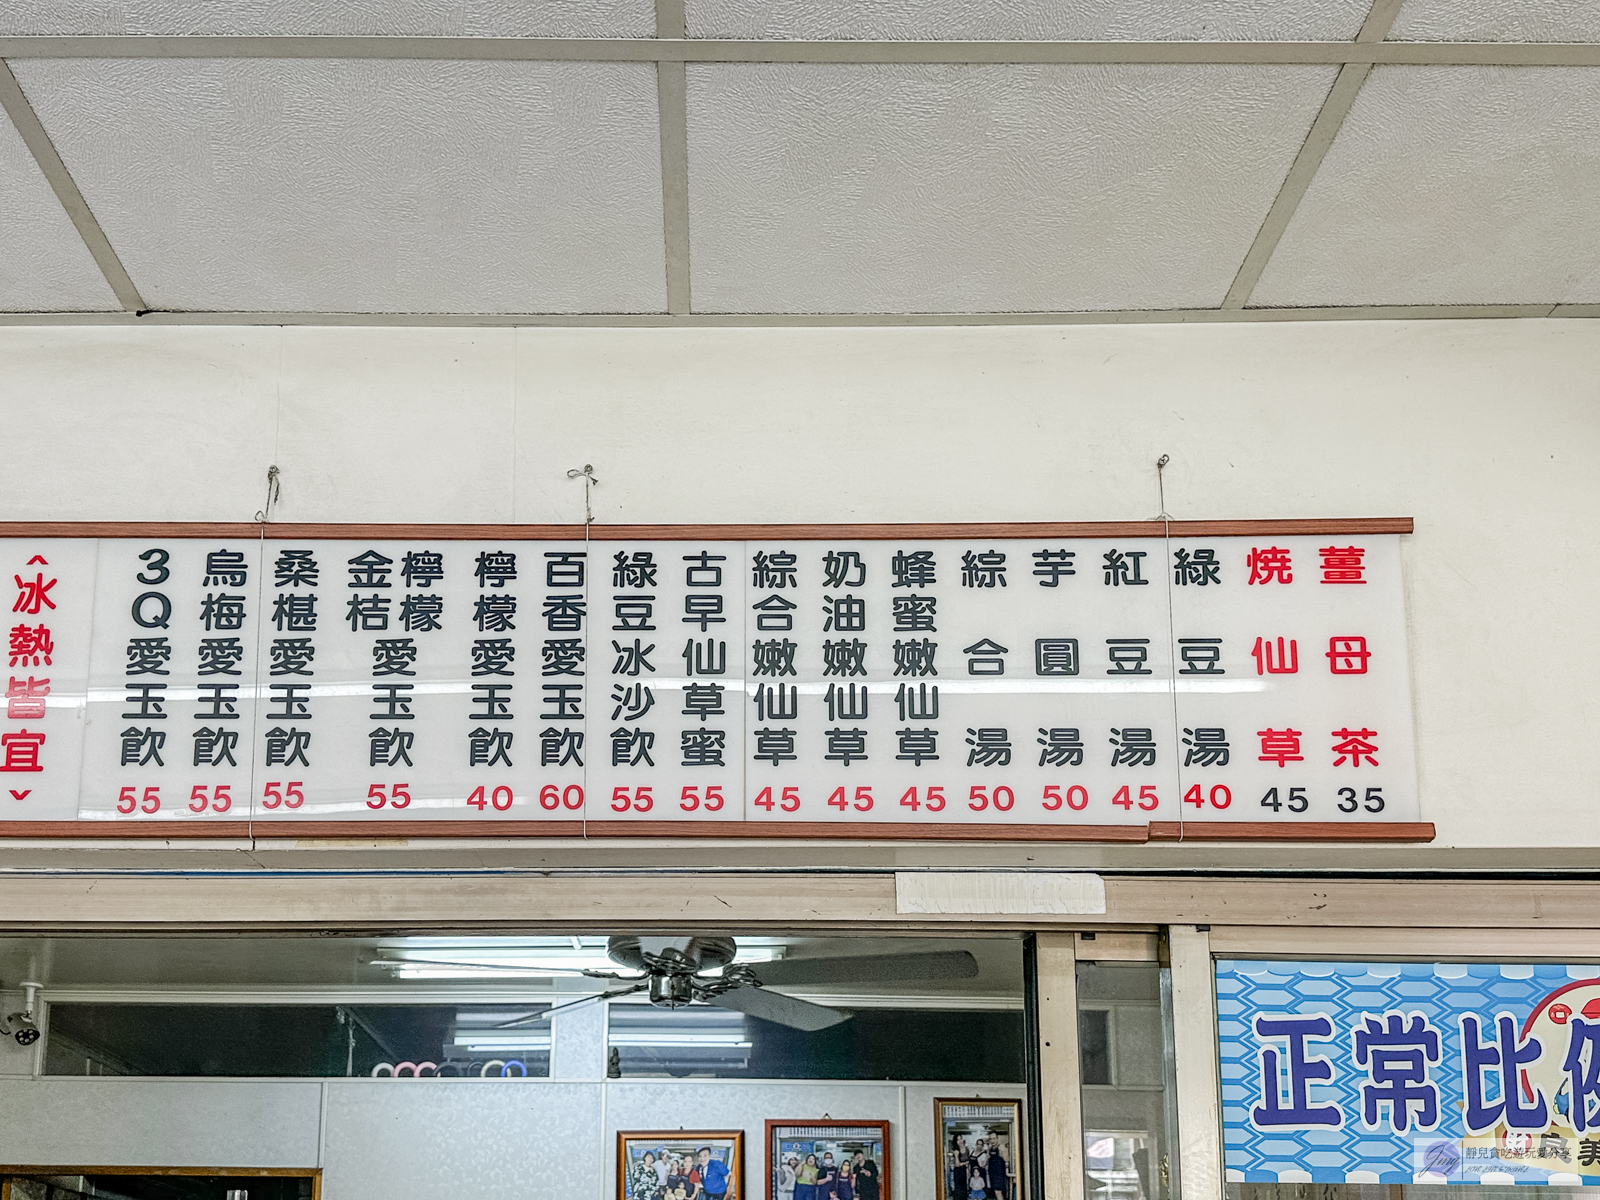 薑母茶 35
燒仙草 45
綠豆湯 40
紅豆湯 45
芋圓湯 50
綜合湯 50
蜂蜜嫩仙草 45
奶油嫩仙草 45
綜合嫩仙草 45
古早仙草蜜 55
綠豆冰沙飲 55
百香愛玉飲 60
檸檬愛玉飲 40
金桔檸檬愛玉飲 55
桑椹愛玉飲 55
烏梅愛玉飲 55
3Q愛玉飲 55
冰熱皆宜
正常比例
靜兒貪吃遊玩愛分享